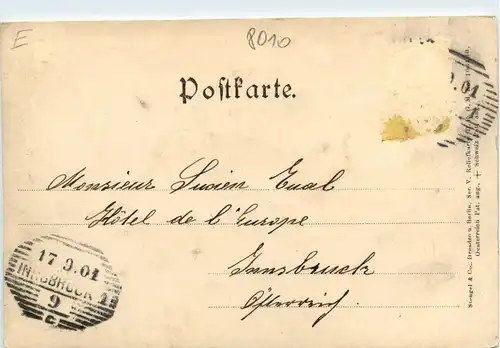 E
8010
Postkarte.
9.01
Monsieur Lucien Eual
Hôtel de l'Europe
Innsbruck
Österreich.
17.9.01
INNSBRUCK 1
9
C
Stengel & Co., Dresden u. Berlin. Ser. V. Reliefkarte
Oesterreich Pat. ang., + Schweiz Pat. ang.